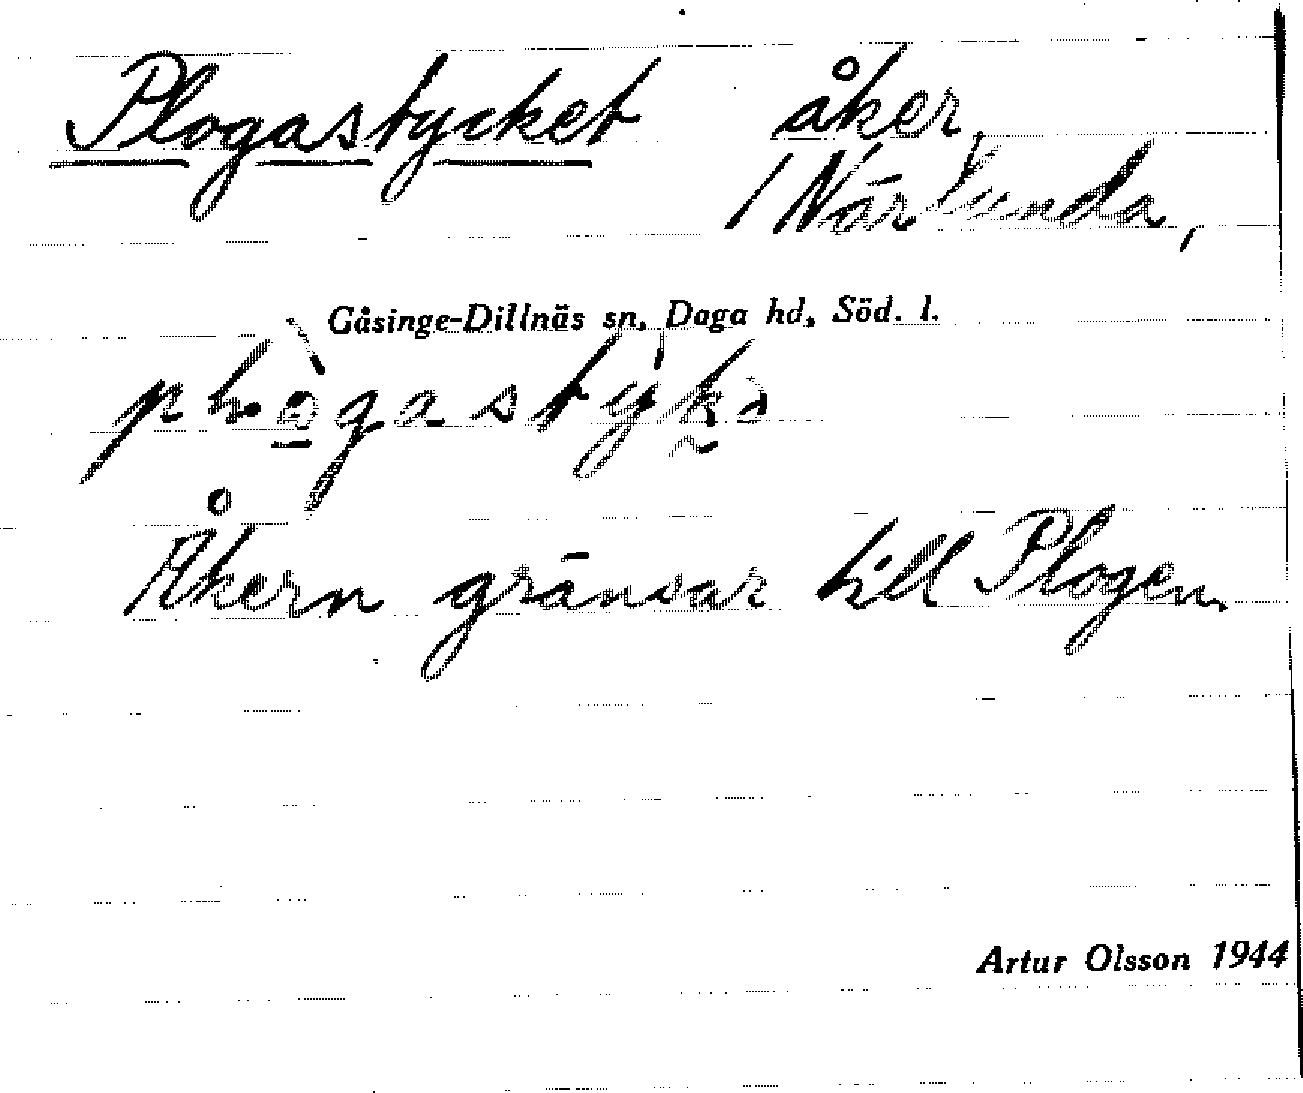 Plogastycket åker,
1 Närlunda,
Gåsinge-Dillnäs sn, Daga hd, Söd. l.
Åkern gränsar till Plogen.
Artur Olsson 1944